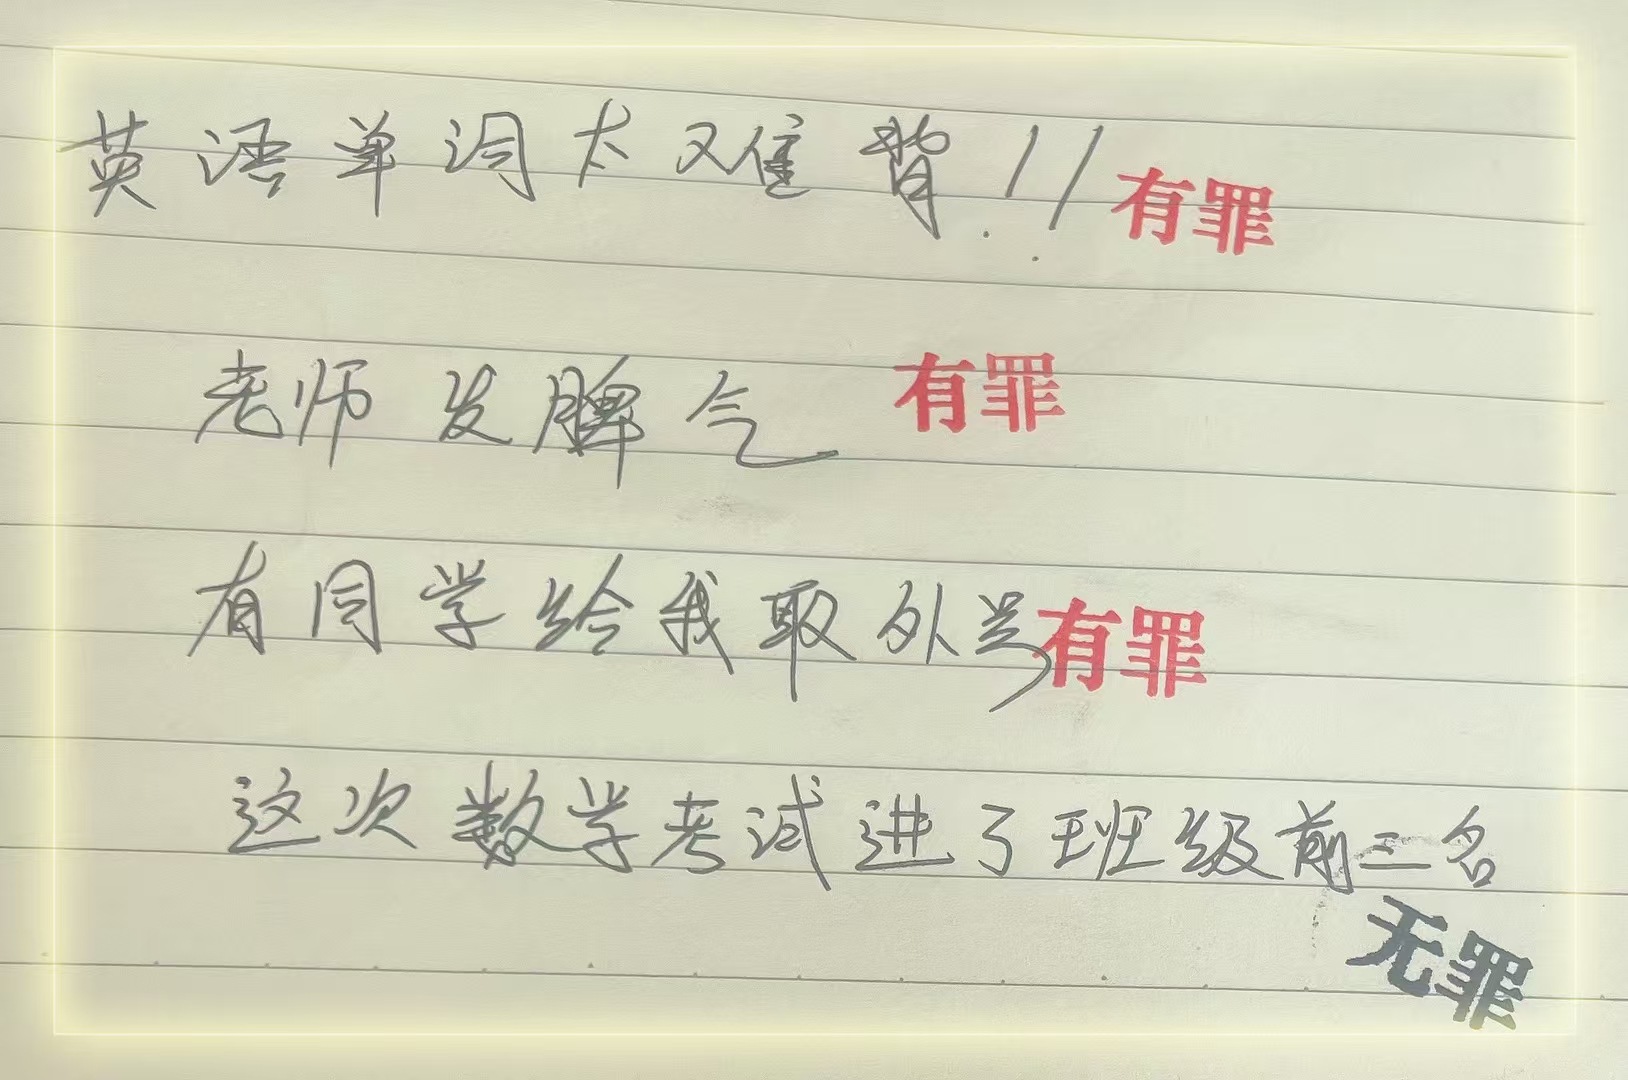 英语单词太难背！！ 有罪
老师发脾气 有罪
有同学给我取外号 有罪
这次数学考试进了班级前三名
无罪